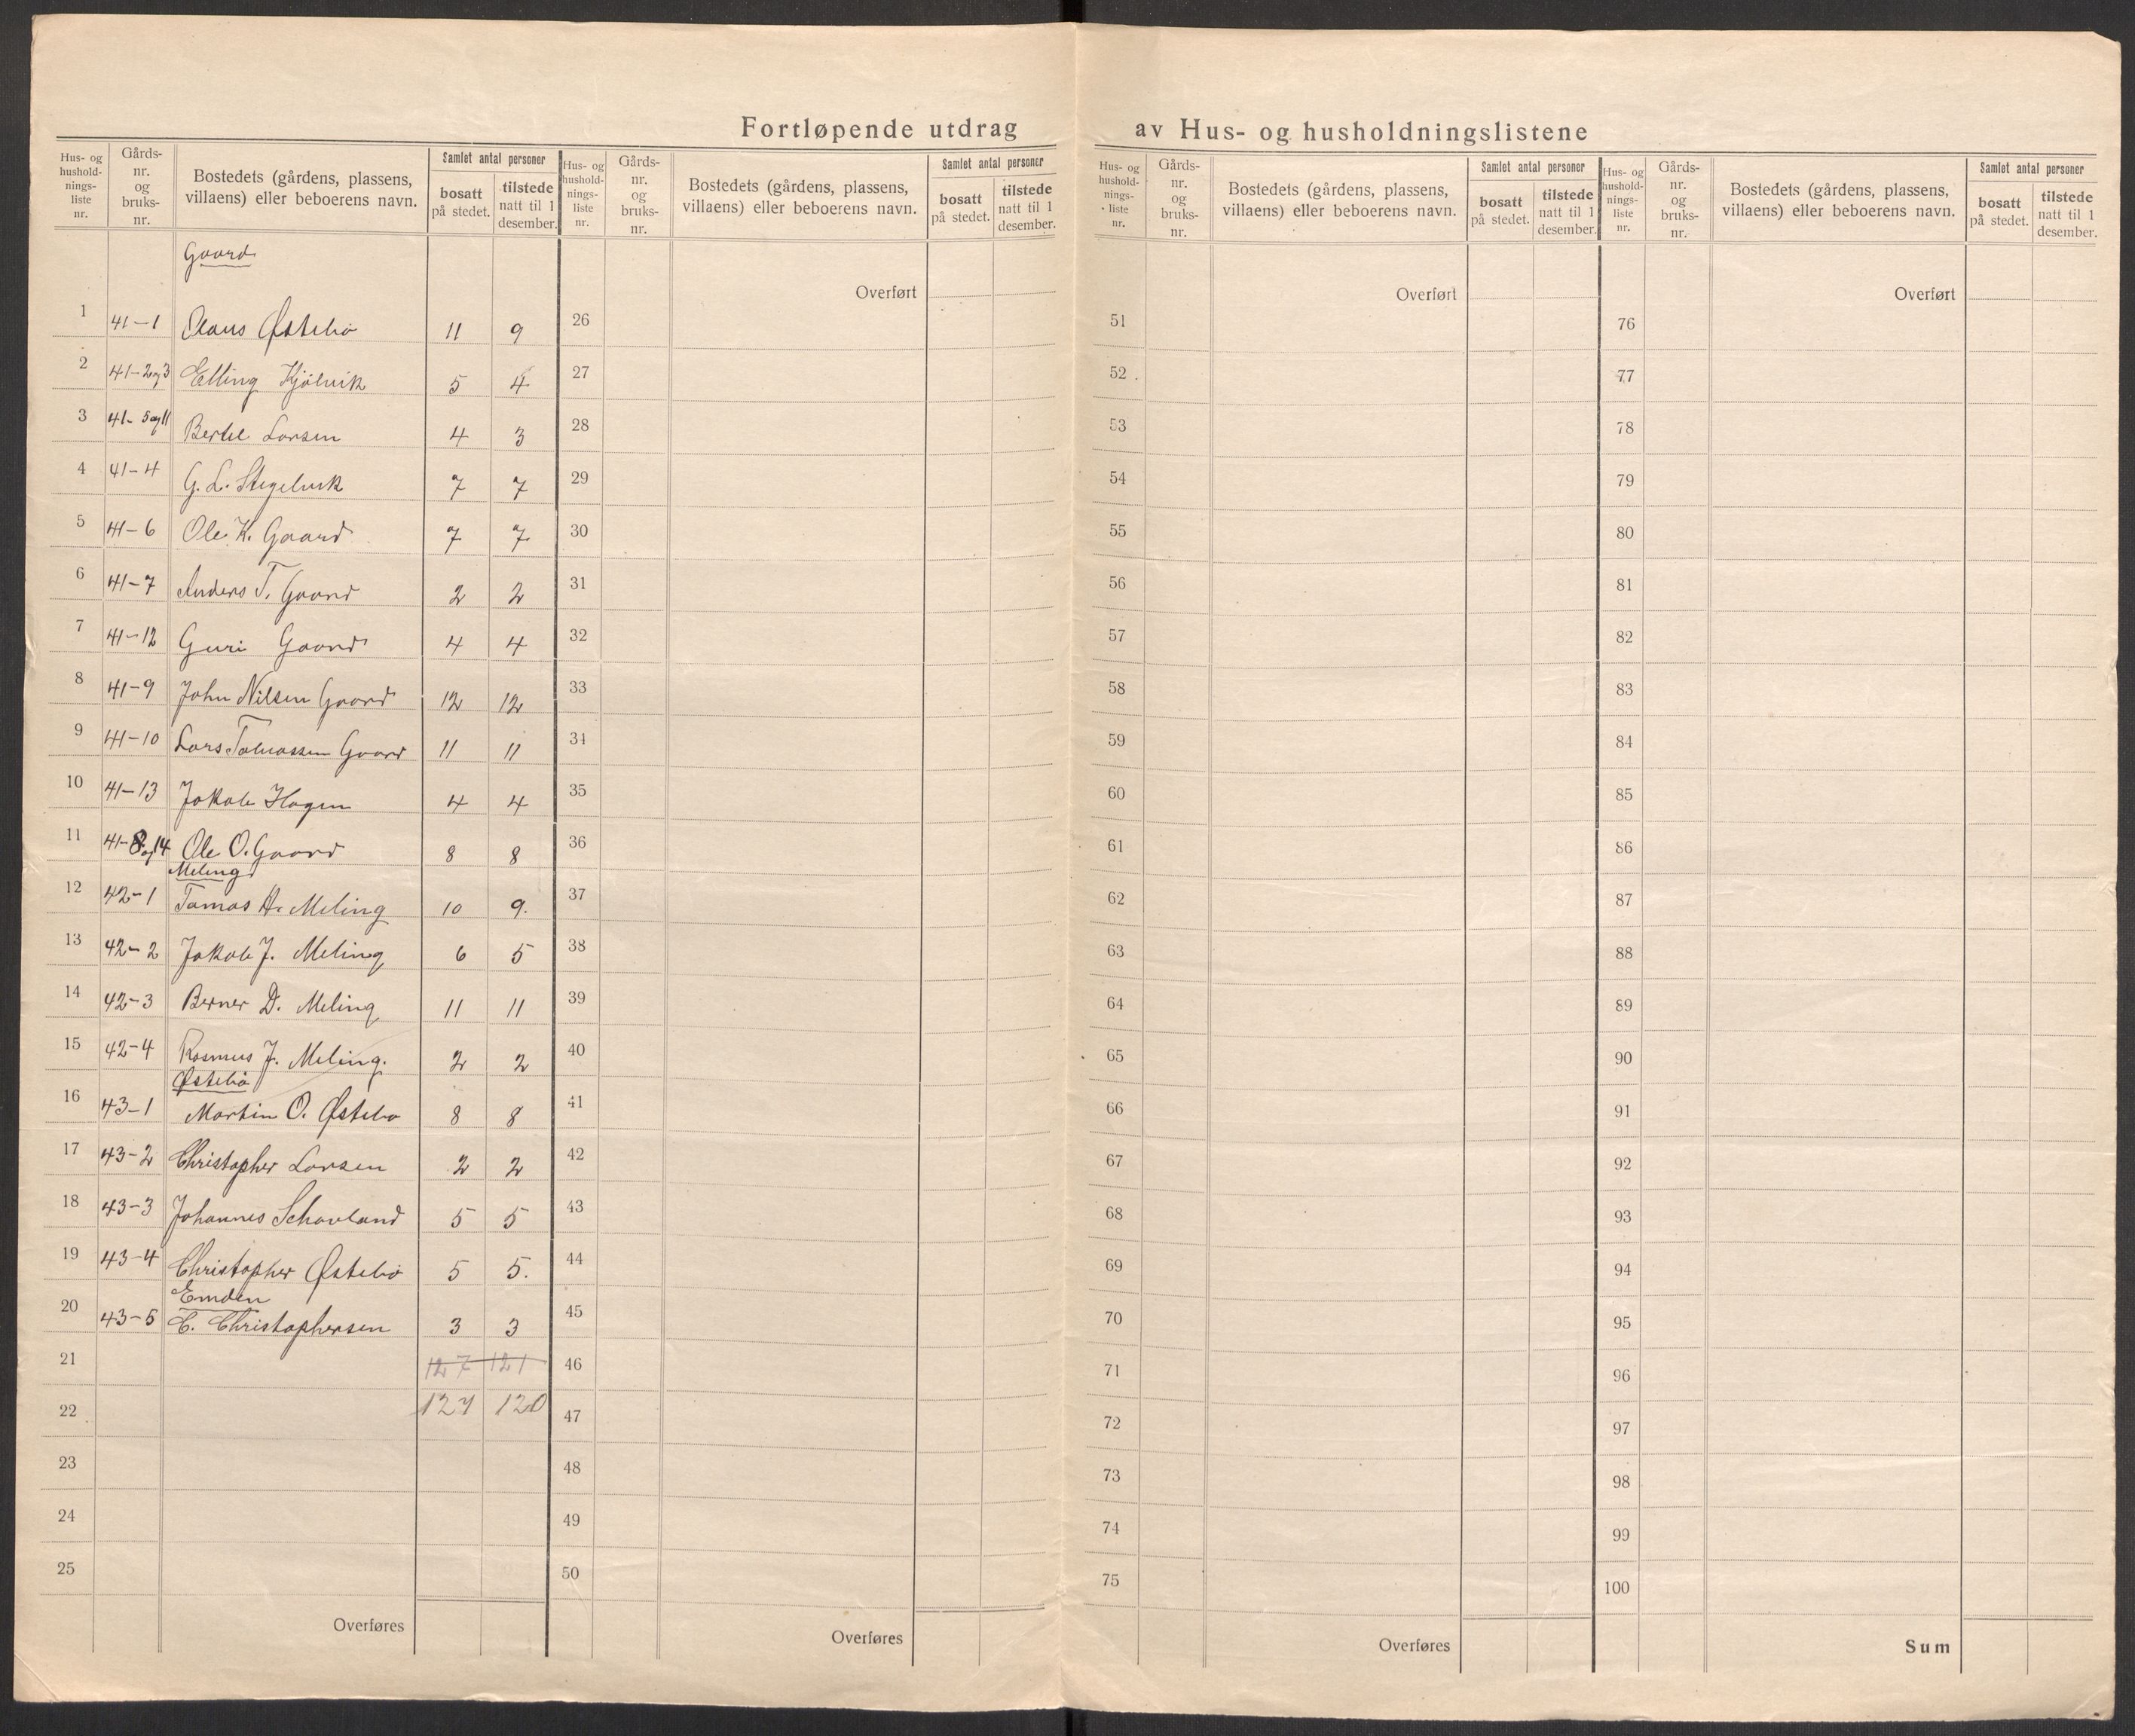 Fortløpende utdrag av Hus- og husholdningslistene
Hus- og hushold- nings- liste nr.
Gårds- nr. og bruks- nr.
Bostedets (gårdens, plassens, villaens) eller beboerens navn.
Samlet antal personer
bosatt på stedet.
tilstede natt til 1 desember.
Hus- og hushold- nings- liste nr.
Gårds- nr. og bruks- nr.
Bostedets (gårdens, plassens, villaens) eller beboerens navn.
Samlet antal personer
bosatt på stedet.
tilstede natt til 1 desember.
Hus- og hushold- nings- liste nr.
Gårds- nr. og bruks- nr.
Bostedets (gårdens, plassens, villaens) eller beboerens navn.
Samlet antal personer
bosatt på stedet.
tilstede natt til 1 desember.
Hus- og hushold- nings- liste nr.
Gårds- nr. og bruks- nr.
Bostedets (gårdens, plassens, villaens) eller beboerens navn.
Samlet antal personer
bosatt på stedet.
tilstede natt til 1 desember.
Gaard
Overført Overført Overført
1 41-1 Olaus Østebö 11 9 26 51 76
2 41-2og3 Elling Kjölvik 5 4 27 52 77
3 41-5og11 Bertel Larsen 4 3 28 53 78
4 41-4 G. L. 7 7 29 54 79
5 41-6 Ole K. Gaard 7 7 30 55 80
6 41-7 Anders T. Gaard 2 2 31 56 81
7 41-12 Guri Gaard 4 4 32 57 82
8 41-9 John Nilsen Gaard 12 12 33 58 83
9 41-10 Lars Gaard 11 11 34 59 84
10 41-13 Jakob Hagen 4 4 35 60 85
11 41-8og14 Ole O. Gaard 8 8 36 61 86
Meling
12 42-1 Tamas A. Meling 10 9. 37 62 87
13 42-2 Jakob J. Meling 6 5 38 63 88
14 42-3 Berner D. Meling 11 11 39 64 89
15 42-4 Rasmus J. Meling. 2 2 40 65 90
Østebö
16 43-1 Martin O. Østebö 8 8 41 66 91
17 43-2 Christopher Larsen 2 2 42 67 92
18 43-3 Johannes Schavland 5 5 43 68 93
19 43-4 Christopher Østebö 5 5. 44 69 94
Emden
20 43-5 C. Christophersen 3 3 45 70 95
21 127 121 46 71 96
22 127 120 47 72 97
23 48 73 98
24 49 74 99
25 50 75 100
Overføres Overføres Overføres Sum